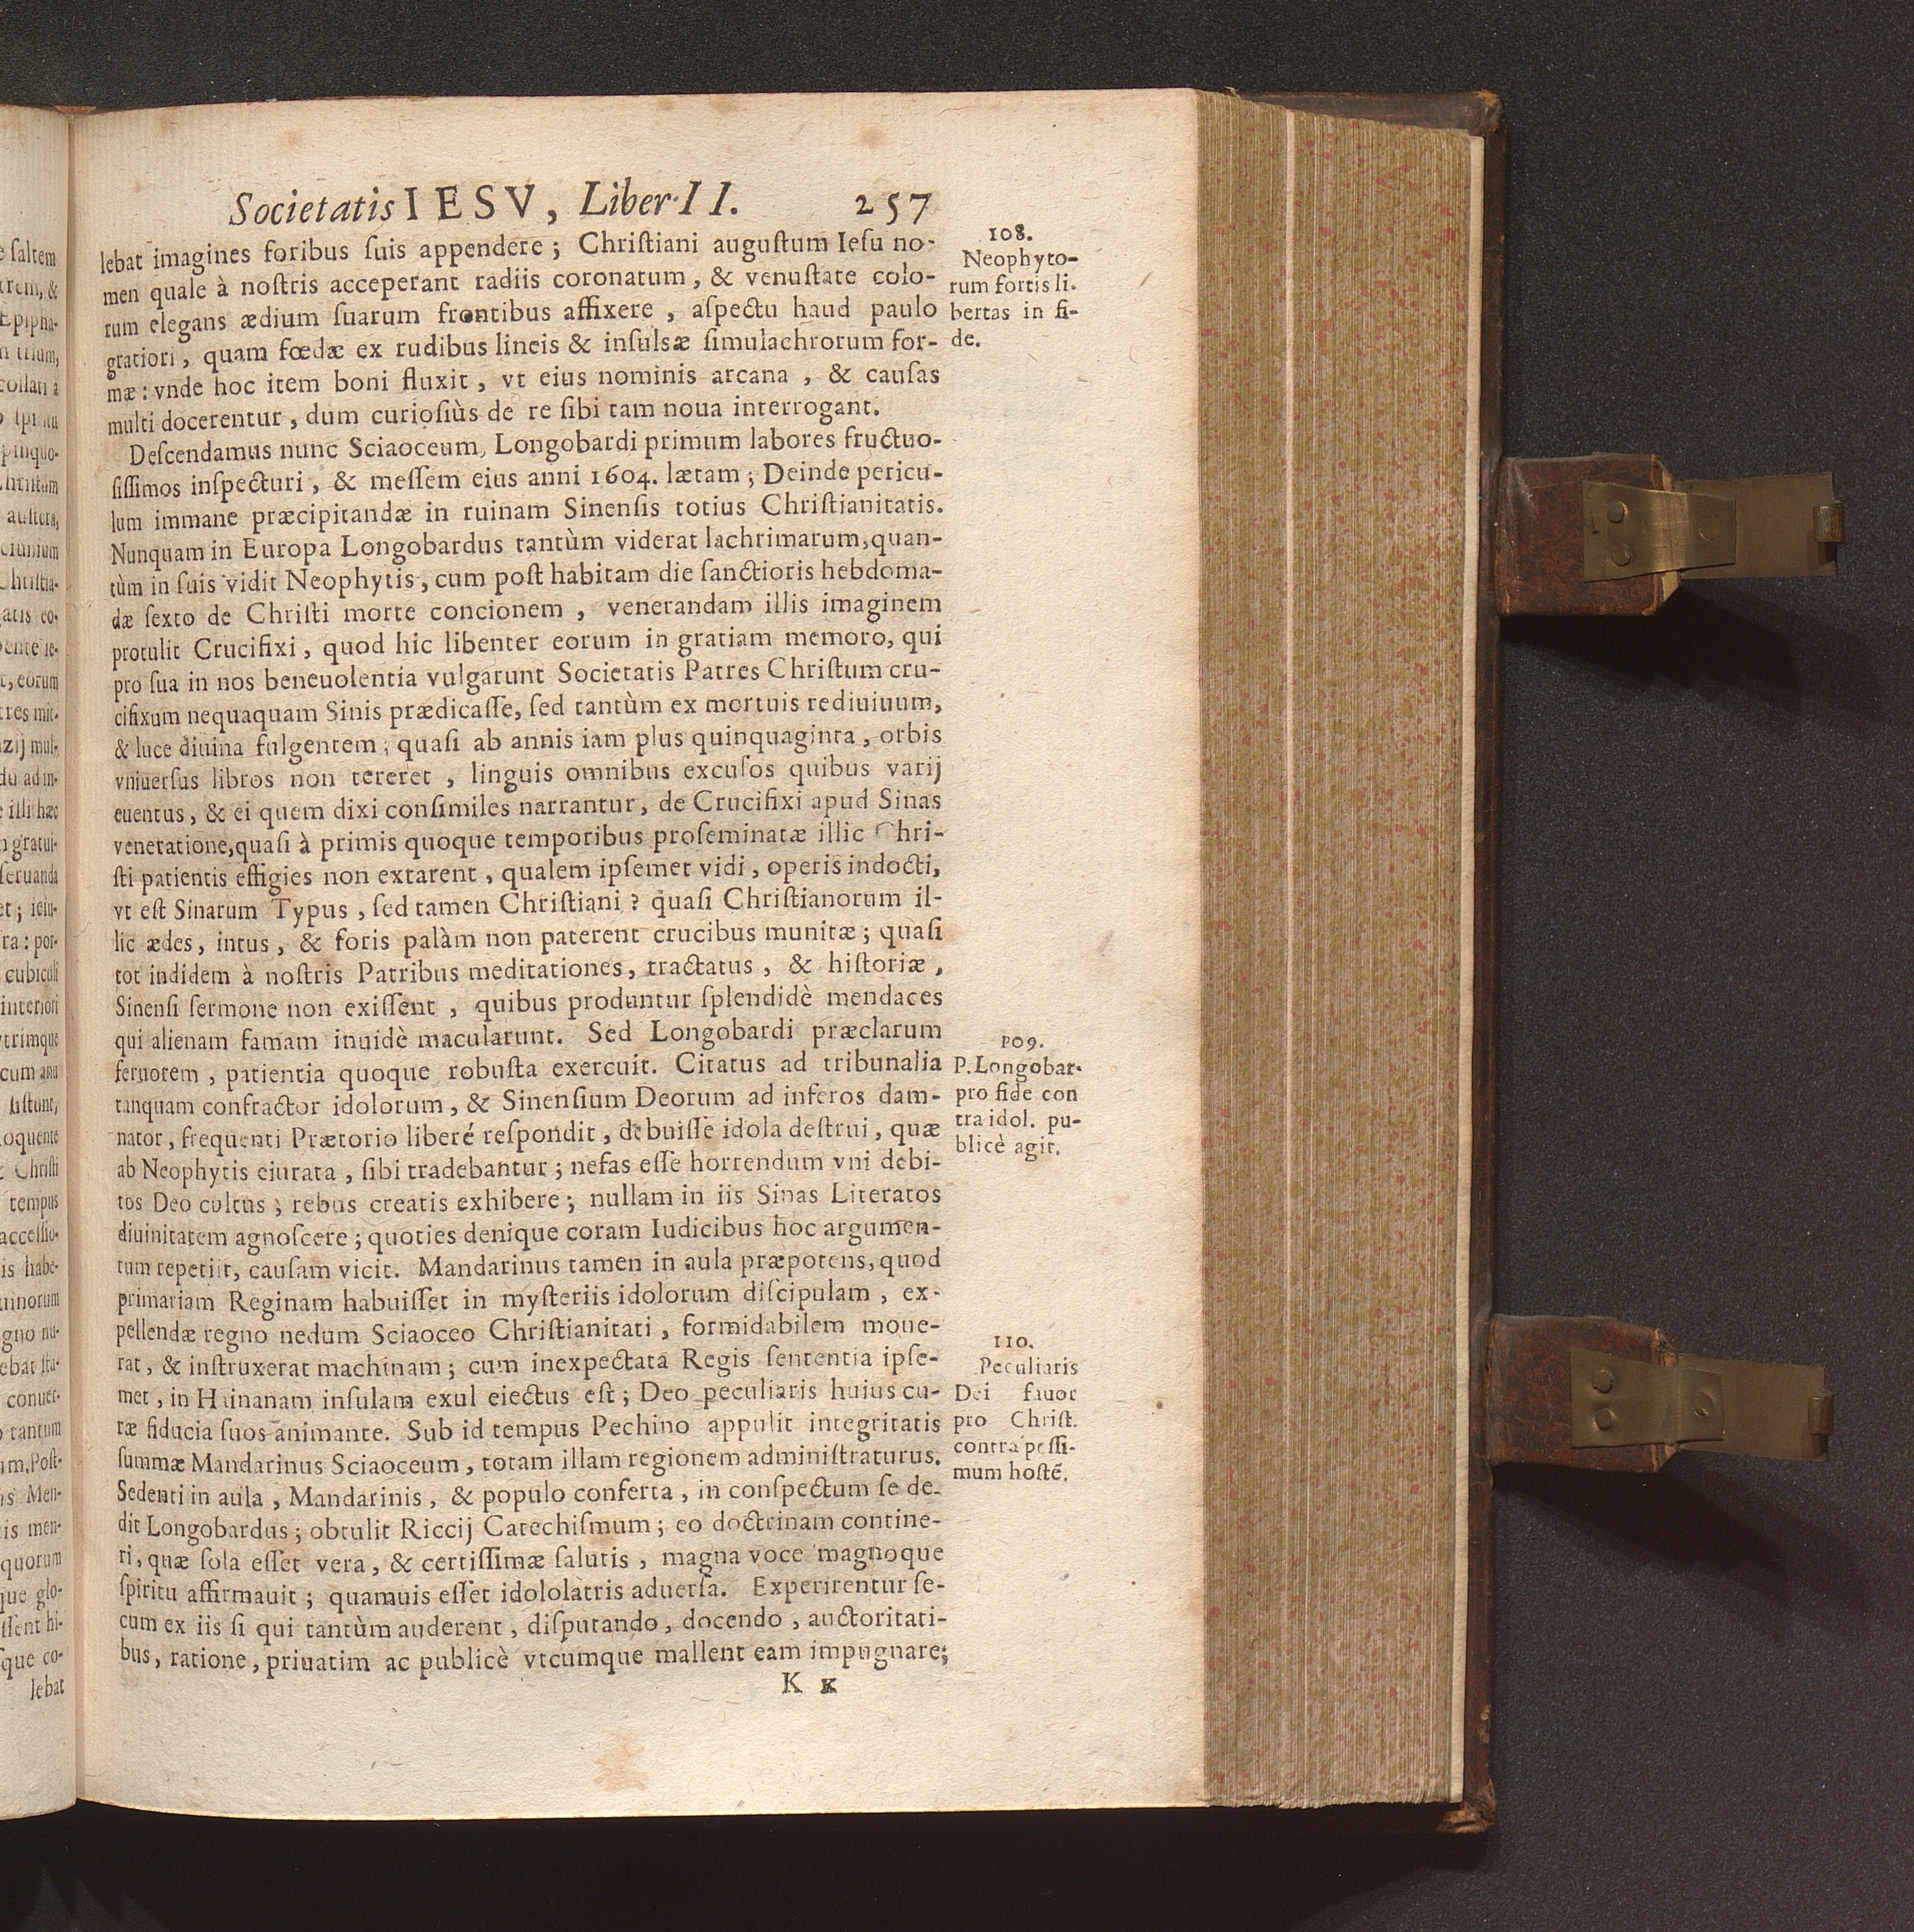 Societatis IESV, Liber II. 257
lebat imagines foribus suis appendere; Christiani augustum Iesu no-
men quale à nostris acceperant radiis coronatum, & venustate colo-
rum elegans ædium suarum frontibus affixere, aspectu haud paulo
gratiori, quam fœdæ ex rudibus lineis & insulsæ simulachrorum for-
mæ: vnde hoc item boni fluxit, vt eius nominis arcana, & causas
multi docerentur, dum curiosiùs de re sibi tam noua interrogant.
Descendamus nunc Sciaoceum, Longobardi primum labores fructuo-
sissimos inspecturi, & messem eius anni 1604. lætam; Deinde pericu-
lum immane præcipitandæ in ruinam Sinensis totius Christianitatis.
Nunquam in Europa Longobardus tantùm viderat lachrimarum, quan-
tùm in suis vidit Neophytis, cum post habitam die sanctioris hebdoma-
dæ sexto de Christi morte concionem, venerandam illis imaginem
protulit Crucifixi, quod hic libenter eorum in gratiam memoro, qui
pro sua in nos beneuolentia vulgarunt Societatis Patres Christum cru-
cifixum nequaquam Sinis prædicasse, sed tantùm ex mortuis rediuiuum,
& luce diuina fulgentem, quasi ab annis iam plus quinquaginta, orbis
vniuersus libros non tereret, linguis omnibus excusos quibus varij
euentus, & ei quem dixi consimiles narrantur, de Crucifixi apud Sinas
veneratione, quasi à primis quoque temporibus proseminatæ illic Chri-
sti patientis effigies non extarent, qualem ipsemet vidi, operis indocti,
vt est Sinarum Typus, sed tamen Christiani? quasi Christianorum il-
lic ædes, intus, & foris palàm non paterent crucibus munitæ; quasi
tot indidem à nostris Patribus meditationes, tractatus, & historiæ,
Sinensi sermone non exissent, quibus produntur splendidè mendaces
qui alienam famam inuidè macularunt. Sed Longobardi præclarum
feruorem, patientia quoque robusta exercuit. Citatus ad tribunalia
tanquam confractor idolorum, & Sinensium Deorum ad inferos dam-
nator, frequenti Prætorio liberé respondit, debuisse idola destrui, quæ
ab Neophytis eiurata, sibi tradebantur; nefas esse horrendum vni debi-
tos Deo cultus; rebus creatis exhibere; nullam in iis Sinas Literatos
diuinitatem agnoscere; quoties denique coram Iudicibus hoc argumen-
tum repetiit, causam vicit. Mandarinus tamen in aula præpotens, quod
primariam Reginam habuisset in mysteriis idolorum discipulam, ex-
pellendæ regno nedum Sciaoceo Christianitati, formidabilem moue-
rat, & instruxerat machinam; cum inexpectata Regis sententia ipse-
met, in Hainanam insulam exul eiectus est; Deo peculiaris huius cu-
ræ fiducia suos animante. Sub id tempus Pechino appulit integritatis
summæ Mandarinus Sciaoceum, totam illam regionem administraturus.
Sedenti in aula, Mandarinis, & populo conferta, in conspectum se de-
dit Longobardus; obtulit Riccij Catechismum; eo doctrinam contine-
ri, quæ sola esset vera, & certissimæ salutis, magna voce magnoque
spiritu affirmauit; quamuis esset idololatris aduersa. Experirentur se-
cum ex iis si qui tantùm auderent, disputando, docendo, auctoritati-
bus, ratione, priuatim ac publicè vtcumque mallent eam impugnare;
K k
108.
Neophyto-
rum fortis li-
bertas in fi-
de.
109.
P. Longobar-
pro fide con
tra idol. pu-
blicè agit.
110.
Peculiaris
Dei fauor
pro Christ.
contra pessi-
mum hostē.